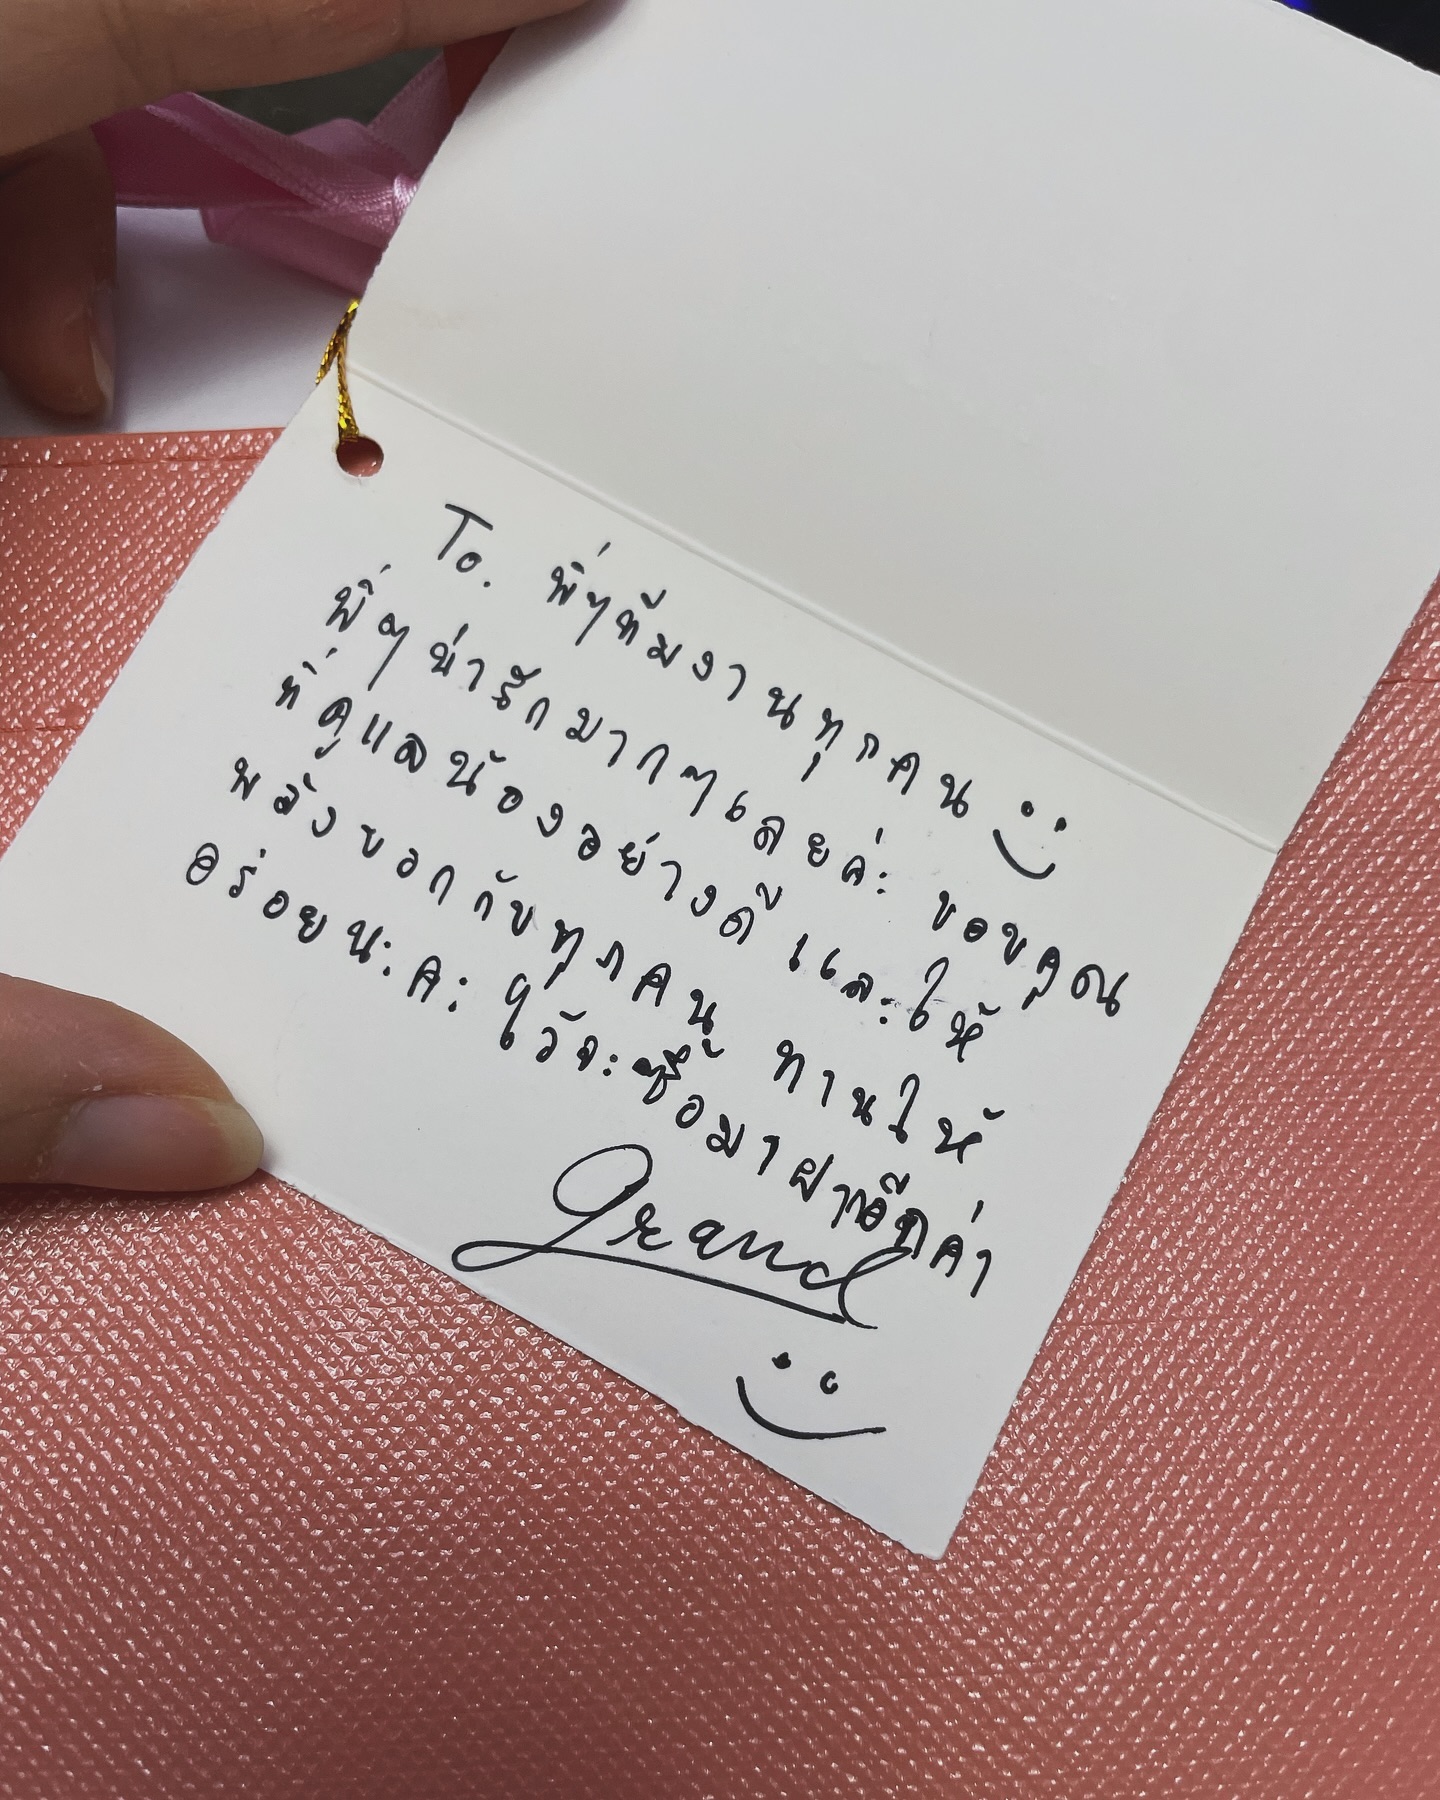 To. พี่ๆทีมงานทุกคน
พี่ๆ น่ารักมากๆเลยค่ะ ขอบคุณ
ที่ดูแลน้องอย่างดี และให้
พลังบวกกับทุกคน ทานให้
อร่อยนะคะ ไว้จะซื้อมาฝากอีกค่า
Grand